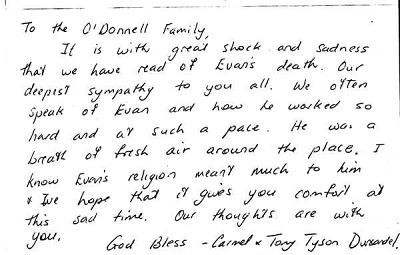 To the O'Donnell Family,
It is with great shock and sadness
that we have read of Evan's death. Our
deepest sympathy to you all. We often
speak of Evan and how he worked so
hard and at such a pace. He was a
breath of fresh air around the place. I
know Evan's religion meant much to him
& I've hope that it gives you comfort at
this sad time. Our thoughts are with
you.
God Bless - Carmel & Tony Tyson